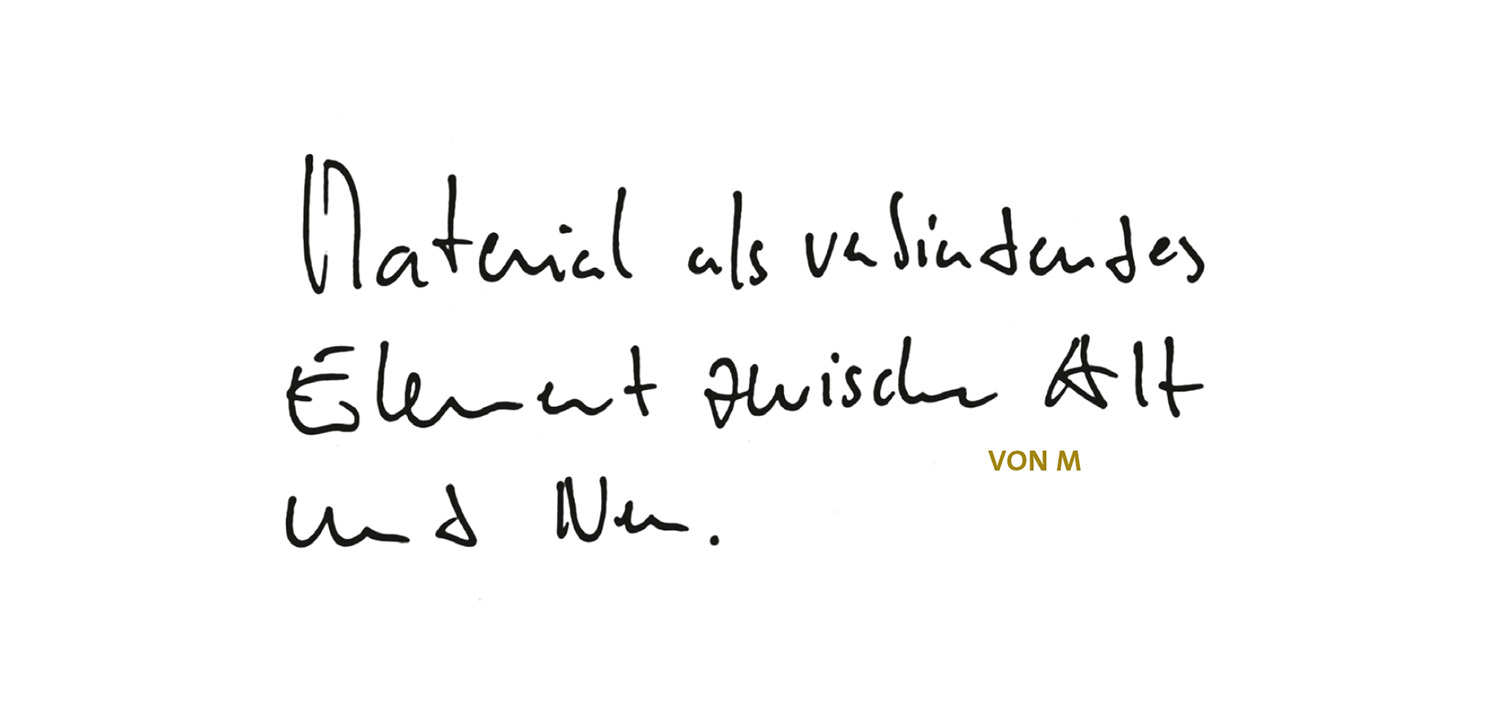 Material als verbindendes
Element zwischen Alt
VON M
und Neu.